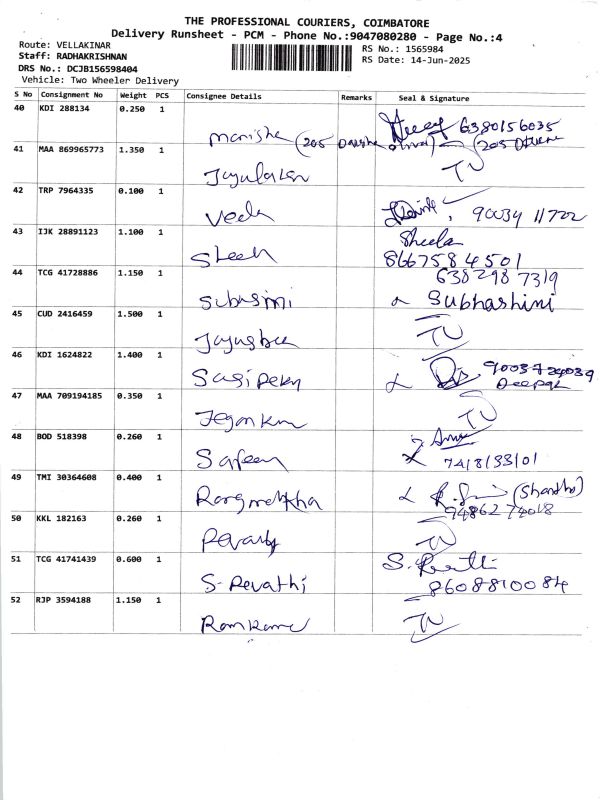 THE PROFESSIONAL COURIERS, COIMBATORE
Delivery Runsheet - PCM - Phone No.:9047080280 - Page No.:4
Route: VELLAKINAR
RS No.: 1565984
Staff: RADHAKRISHNAN
RS Date: 14-Jun-2025
DRS No.: DCJB156598404
Vehicle: Two Wheeler Delivery
S No Consignment No Weight PCS Consignee Details Remarks Seal & Signature
40 KDI 288134 0.250 1 Manisha (205 6380156035 (205
41 MAA 869965773 1.350 1 TU
42 TRP 7964335 0.100 1 Veda 90034 11722
43 IJK 28891123 1.100 1 Sheela 8667584501
44 TCG 41728886 1.150 1 6382987319 Subhashini
45 CUD 2416459 1.500 1 TU
46 KDI 1624822 1.400 1 Deepak
47 MAA 709194185 0.350 1 TU
48 BOD 518398 0.260 1
49 TMI 30364608 0.400 1
50 KKL 182163 0.260 1 TU
51 TCG 41741439 0.600 1 S. Revathi 8608810084
52 RJP 3594188 1.150 1 TU